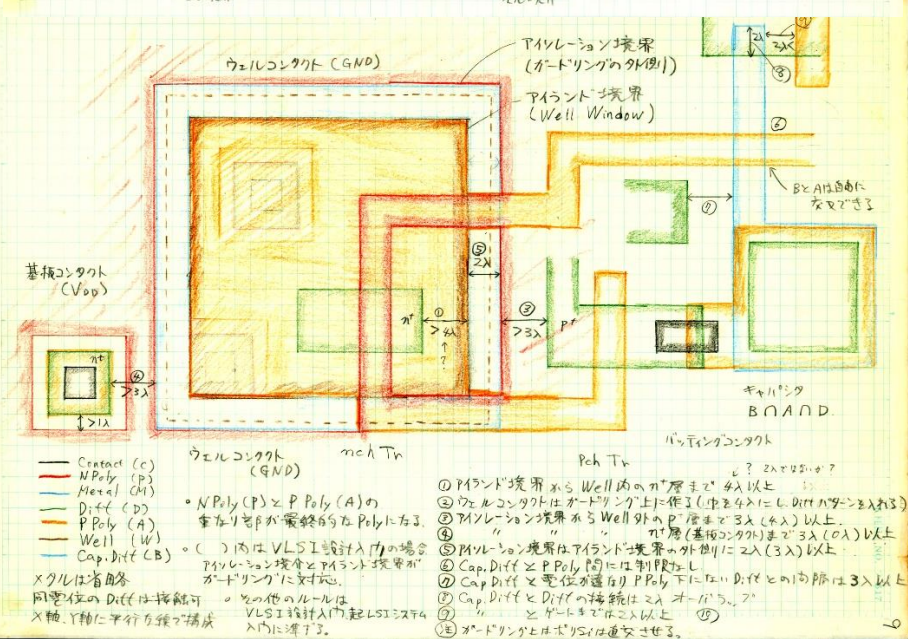 アイソレーション境界
(ガードリングの外側)
ウェルコンタクト(GND)
アイランド境界
(Well Window)
2λ
3λ
⑧
⑥
BとAは自由に
交叉できる
⑦
基板コンタクト
(VDD)
⑤
2λ
n+
①
>4λ
?
③
>3λ
p+
n+
④
>3λ
>1λ
キャパシタ
BNAND.
バッティングコンタクト
ウェルコンタクト
(GND)
nch Tr
Pch Tr
? 2λではないか?
Contact (C)
NPoly (P)
Metal (M)
Diff (D)
P Poly (A)
Well (W)
Cap. Diff (B)
×タルは省略
同電位のDiffは接触可
X軸、Y軸に平行な線で構成
• NPoly(P)とP Poly(A)の
重なり部が最終的なPolyになる.
•( )内はVLSI設計入門の場合
アイソレーション境界とアイランド境界が
ガードリングに対応.
• その他のルールは
VLSI設計入門、超LSIシステム
入門に準ずる.
① アイランド境界からWell内のn+層まで4λ以上
② ウェルコンタクトはガードリング上に作る(巾を4λにし、Diffパターンを入れる)
③ アイソレーション境界からWell外のp+層まで3λ(4λ)以上.
④ 〃 〃 n+層(基板コンタクト)まで3λ(0λ)以上
⑤ アイソレーション境界はアイランド境界の外側に2λ(3λ)以上
⑥ Cap.DiffとP Poly間には制限なし
⑦ Cap Diffと電位が異なりP Poly下にないDiffとの間隔は3λ以上
⑧ Cap.DiffとDiffの接続は2λオーバラップ
⑨ 〃 とゲートまでは2λ以上 ⑩
(注) ガードリング上はポリSiは直交させる。